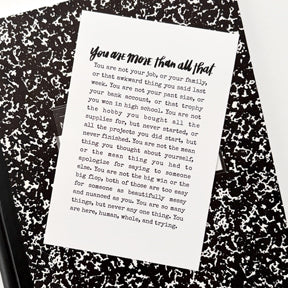 You are more than all that
You are not your job, or your family,
or that awkward thing you said last
week. You are not your pant size, or
your bank account, or that trophy
you won in high school. You are not
the hobby you bought all the
supplies for, but never started, or
all the projects you did start, but
never finished. You are not the mean
thing you thought about yourself,
or the mean thing you had to
apologize for saying to someone
else. You are not the big win or the
big flop, both of those are too easy
for someone as beautifully messy
and nuanced as you. You are so many
things, but never any one thing. You
are here, human, whole, and trying.